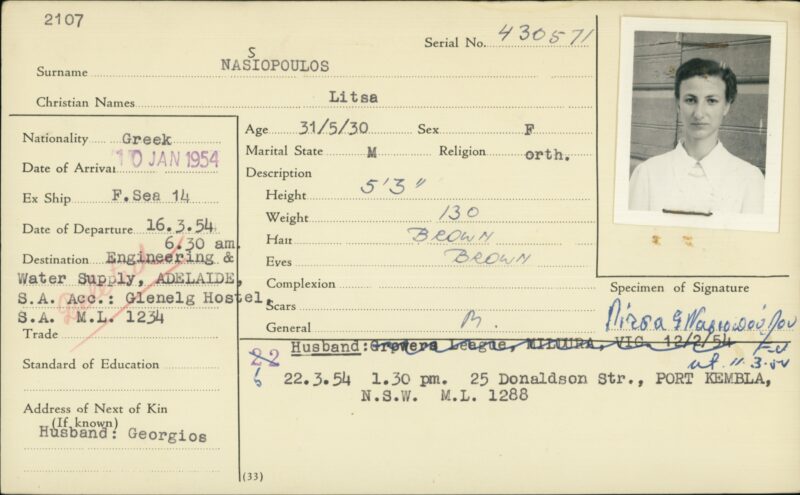 2107
Serial No. 430571
S
Surname NASIOPOULOS
Christian Names Litsa
Nationality Greek
Date of Arrival 10 JAN 1954
Ex Ship F.Sea 14
Date of Departure 16.3.54
6.30 am.
Destination Engineering &
Water Supply, ADELAIDE,
S.A. Acc.: Glenelg Hostel,
S.A. M.L. 1234
Trade
Standard of Education
Address of Next of Kin
(If known)
Husband: Georgios
Age 31/5/30 Sex F
Marital State M Religion orth.
Description
Height 5'3"
Weight 130
Hair BROWN
Eyes BROWN
Complexion
Scars
General M.
Specimen of Signature
Λίτσα Γ Νασιοπούλου
Husband: Growers League, MILDURA, VIC. 12/2/54
11.3.54
22
6
22.3.54 1.30 pm. 25 Donaldson Str., PORT KEMBLA,
N.S.W. M.L. 1288
(33)